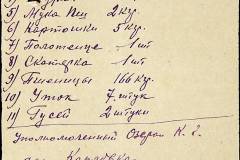 5) Мука пш 2 кур.
6) Картошки 5 кур.
7) Полотенце - 1 шт
8) Скатярка - 1 шт
9) Пшеницы 166 кур.
10) Уток 7 штук
11) Гусей 2 штуки
Уполномоченный Озеров К. г.